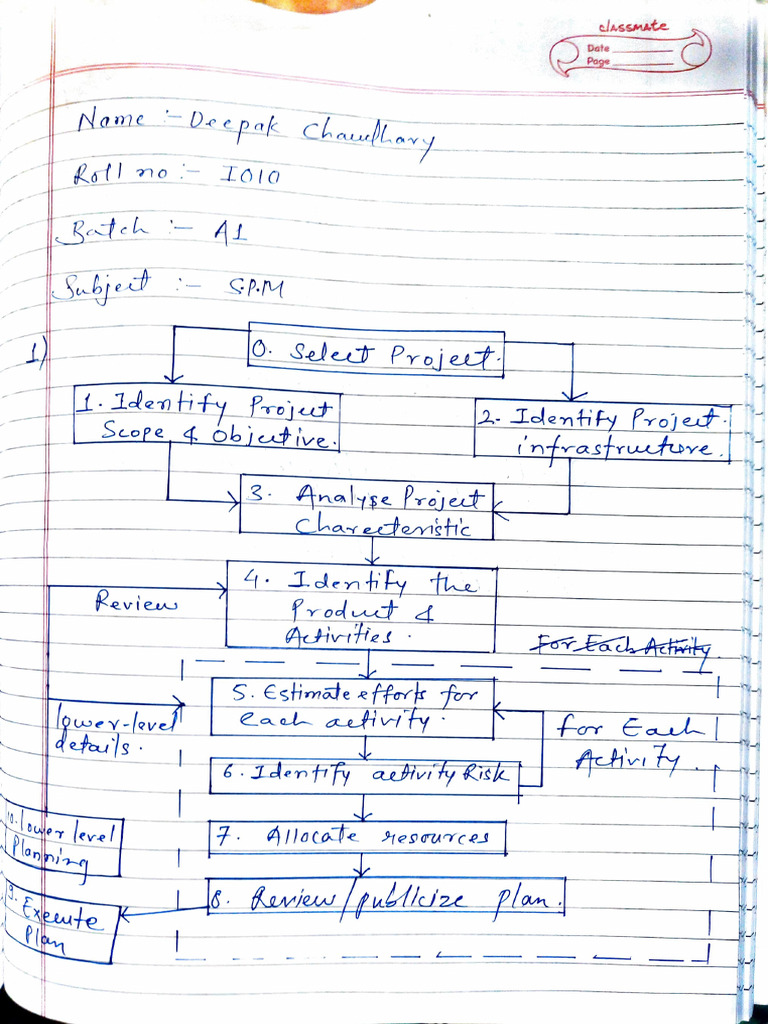 classmate
Date
Page
Name :- Deepak Chaudhary
Roll no :- I010
Batch :- A1
Subject :- S.P.M
1)
0. Select Project.
1. Identify Project
Scope & Objective.
2. Identify Project
infrastructure.
3. Analyse Project
Charecteristic
4. Identify the
Product &
Activities.
Review
For Each Activity
5. Estimate efforts for
each activity.
for Each
Activity.
lower-level
details.
6. Identify activity Risk
7. Allocate resources
10. Lower level
Planning
8. Review/publicize plan.
9. Execute
Plan